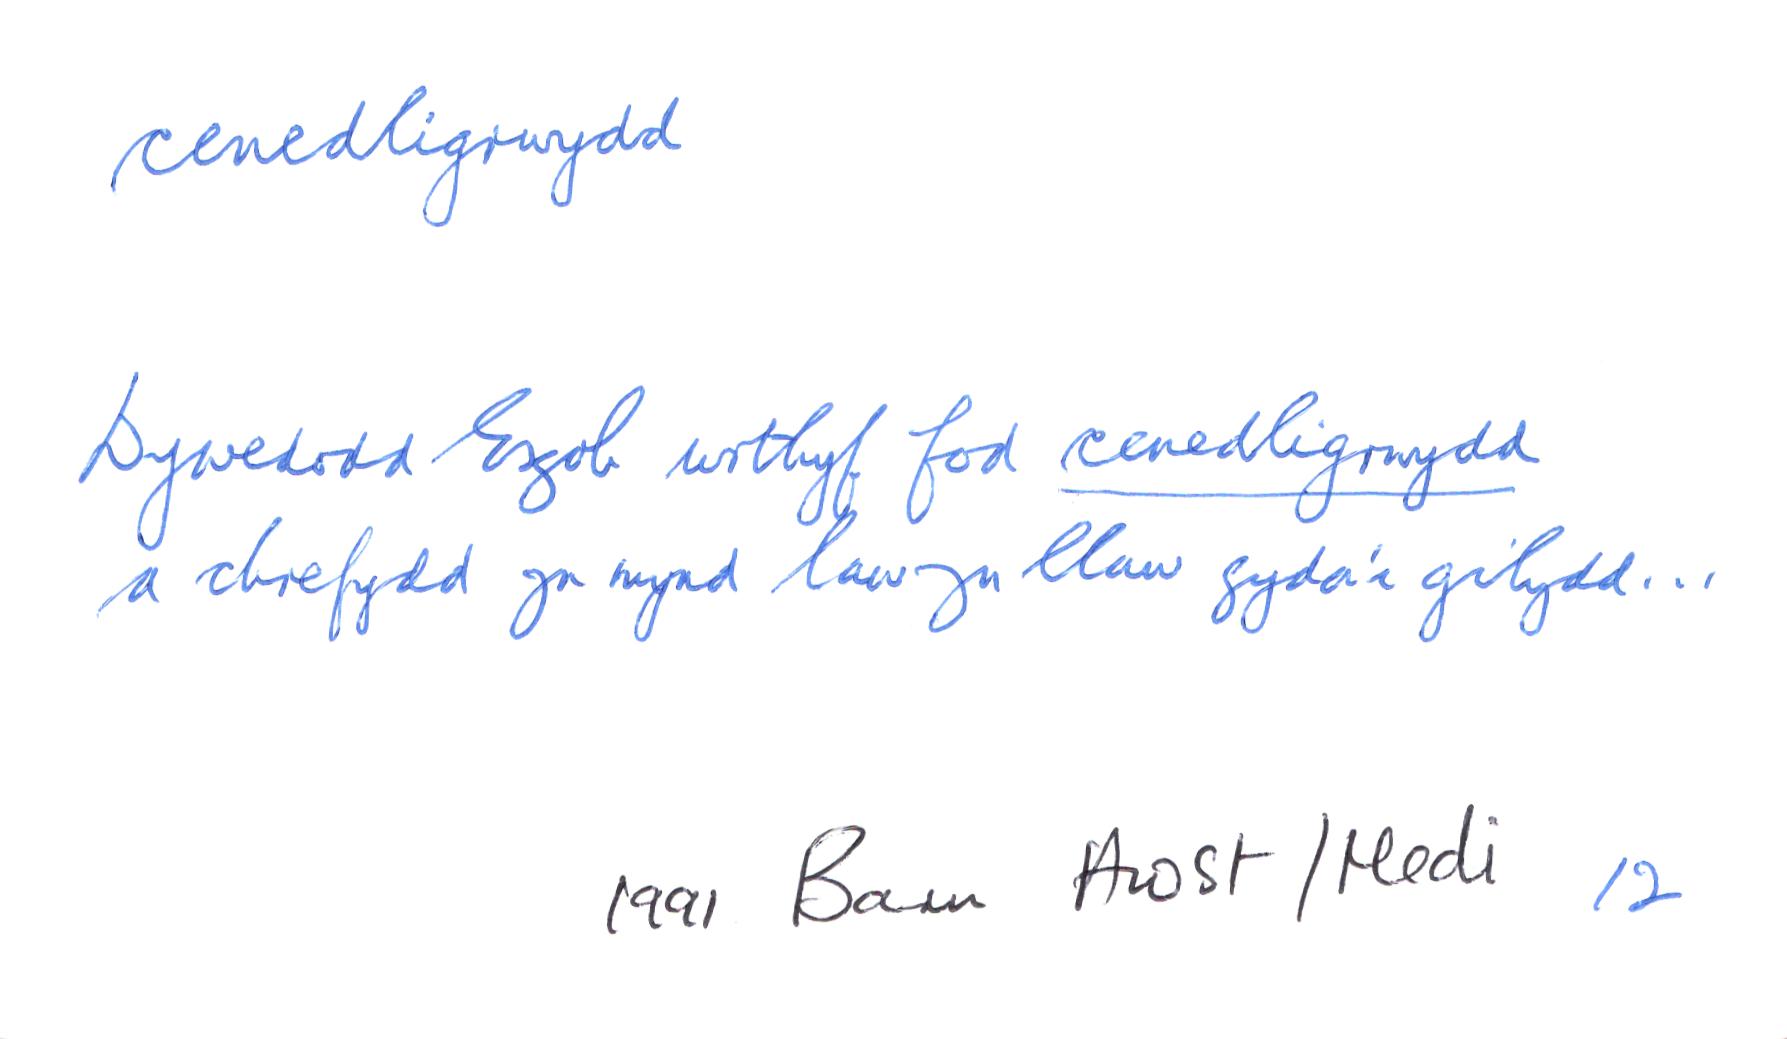 cenedligrwydd
Dywedodd Esgob wrthyf fod cenedligrwydd
a chrefydd yn mynd law yn llaw gyda'i gilydd...
1991 Barn Awst/Medi 12